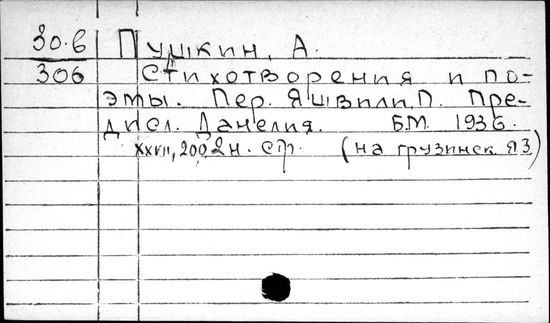 30.6 Пушкин, А.
306 Стихотворения и по-
эмы. Пер. Яшвили П. Пре-
дисл. Данелия. Б.М. 1936.
XXVII, 200, 2 н. стр. (на грузинск. яз.)